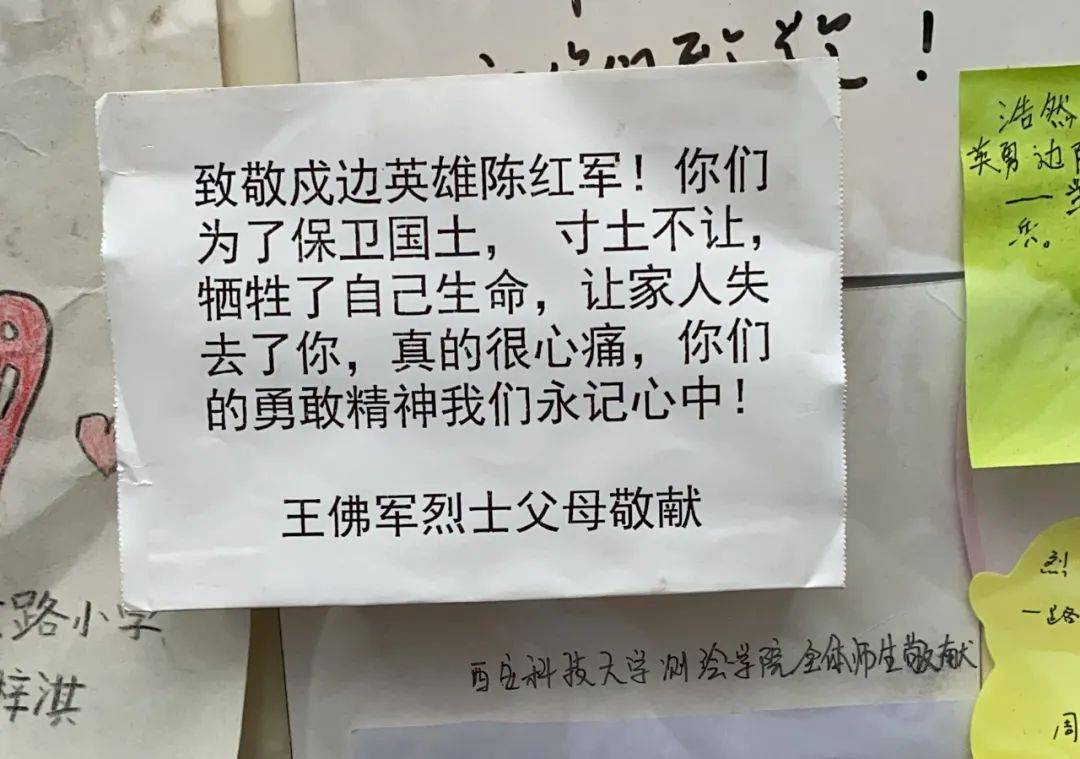 致敬戍边英雄陈红军！你们
为了保卫国土， 寸土不让，
牺牲了自己生命，让家人失
去了你，真的很心痛，你们
的勇敢精神我们永记心中！
王佛军烈士父母敬献
西安科技大学测绘学院全体师生敬献
路小学
梓淇
浩然
英勇边
烈
一路
周